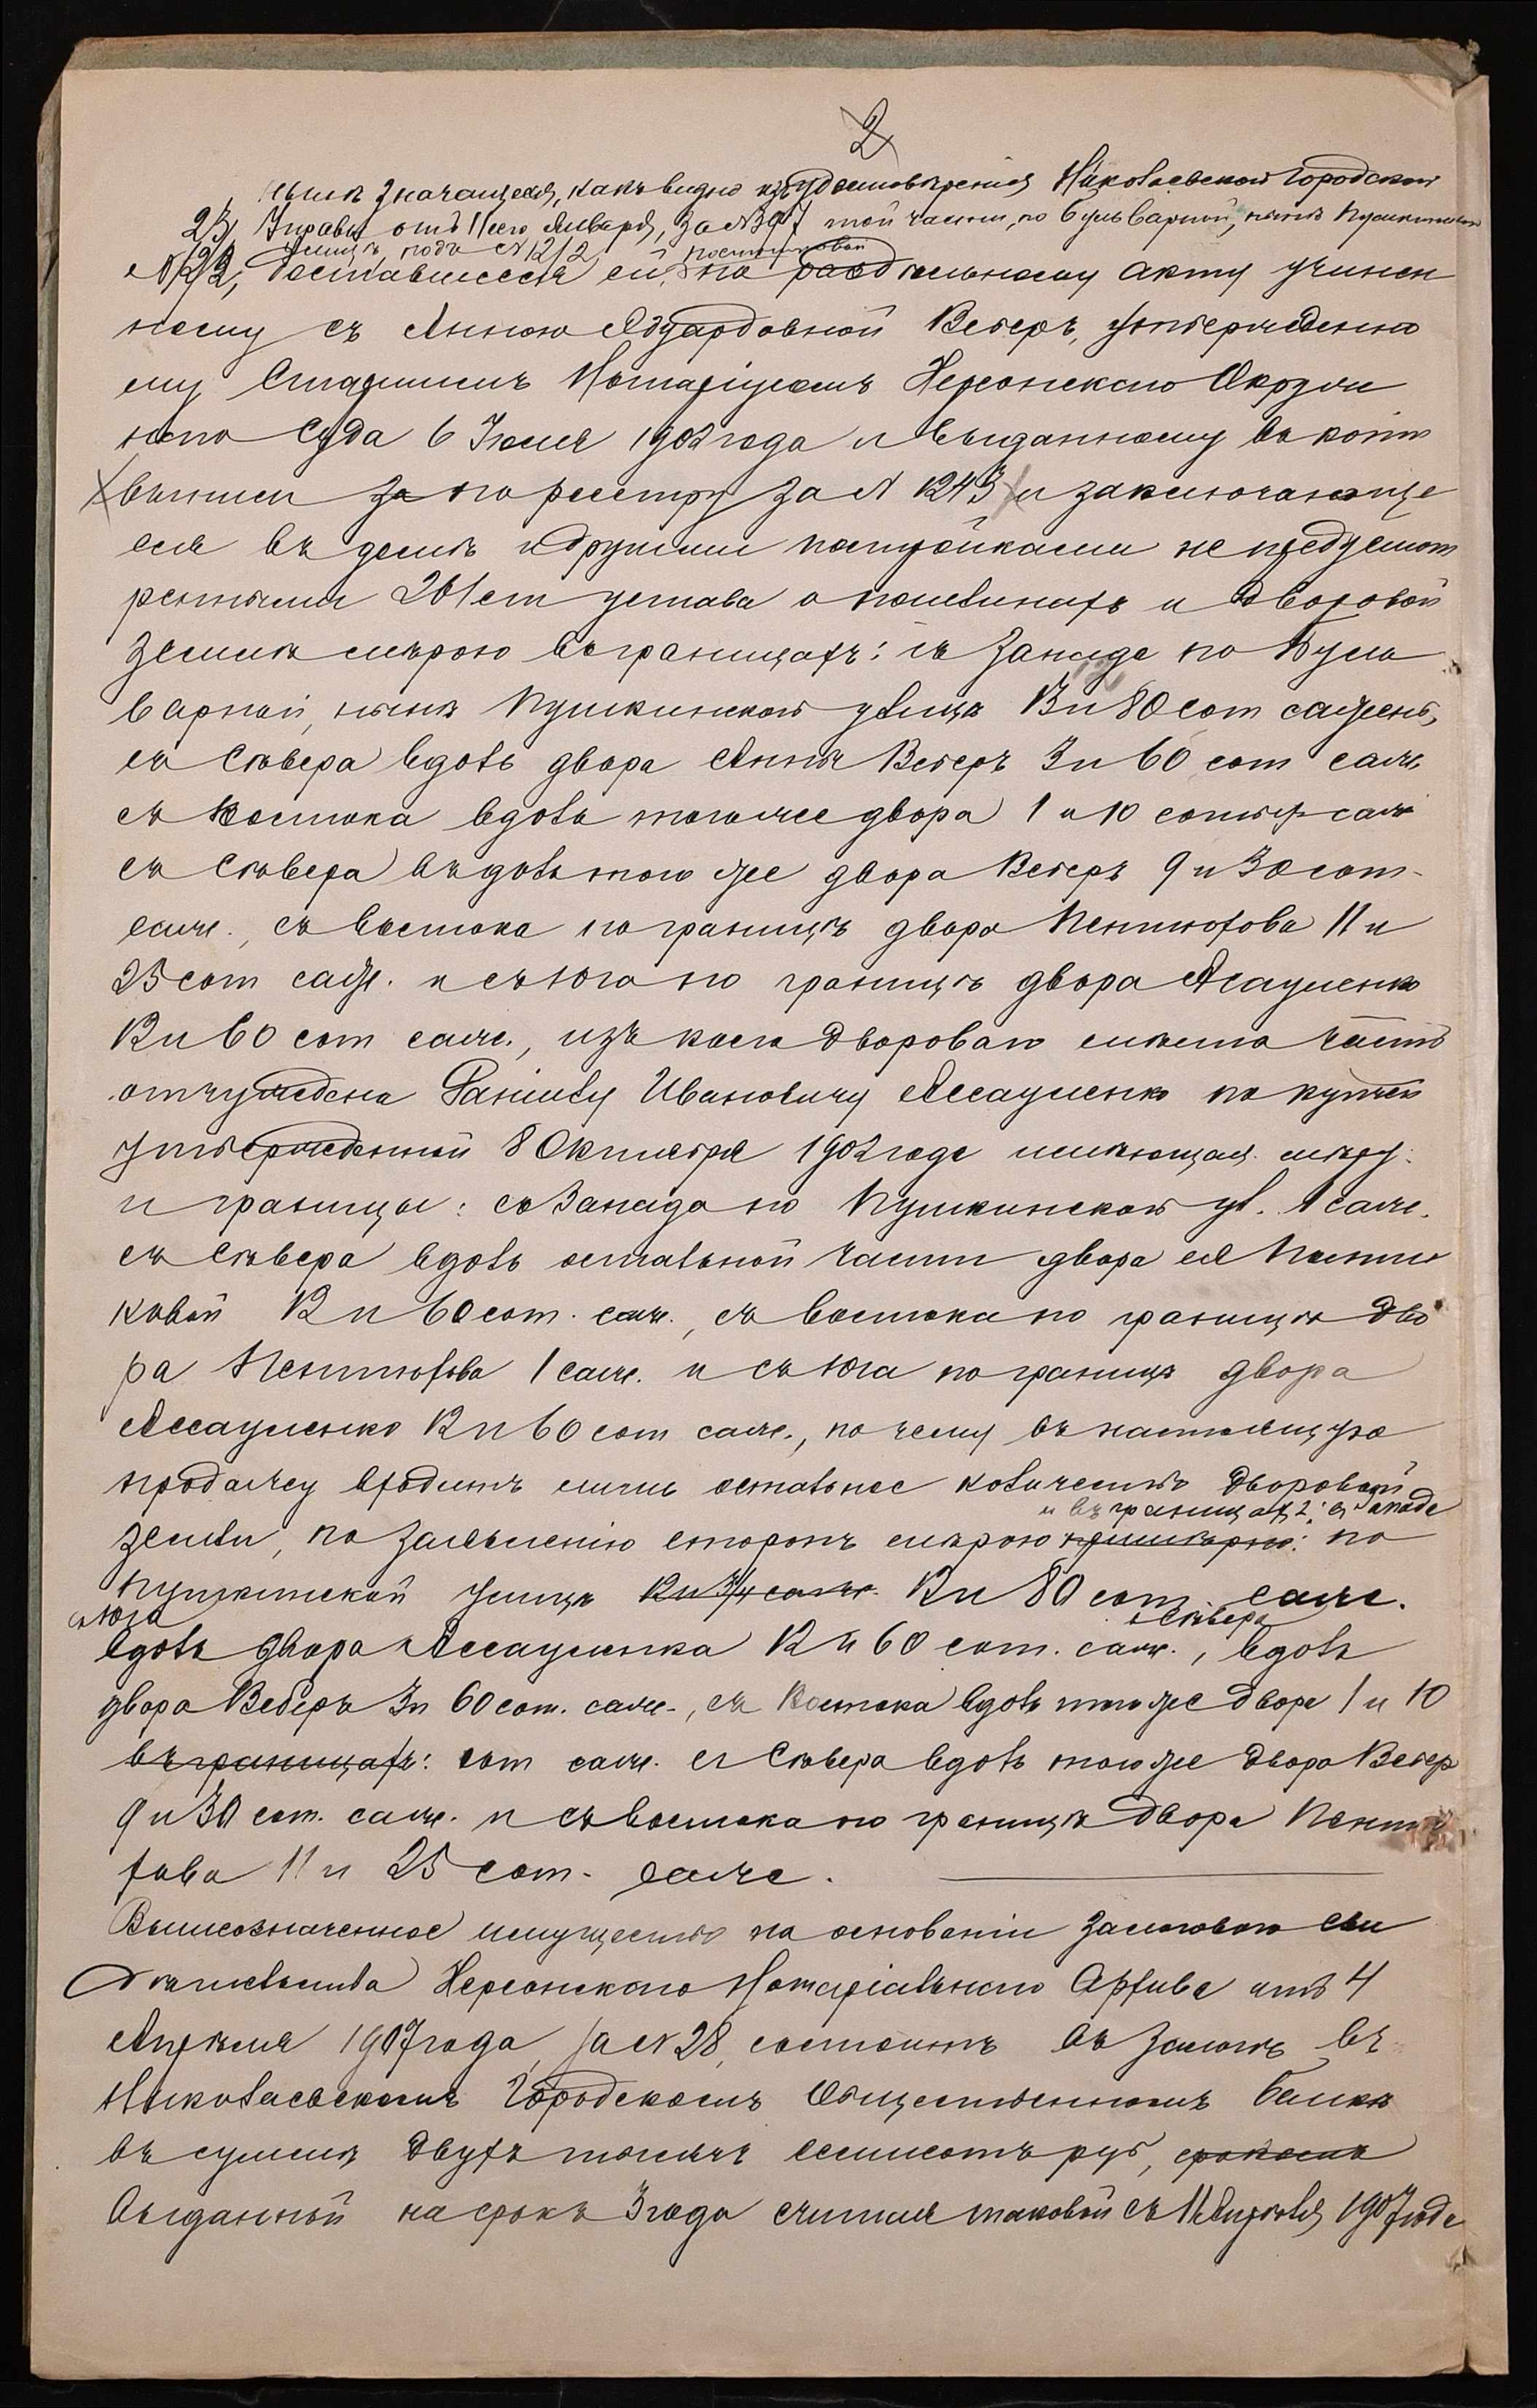 2
нынѣ значащееся, какъ видно изъ удостовѣренія Николаевской Городской
23, Управы отъ 11 сего Января, за № 397 той части, по Бульварной, нынѣ Пушкинской
улицѣ, подъ № 12/2, Постниковой
№ 12/2, доставшееся ей, по раздѣльному акту учинен
ному съ Анною Эдуардовной Веберъ, утвержденно
му Старшимъ Нотаріусомъ Херсонскаго Окруж
наго Суда 6 Іюля 1902 года и выданному въ копіи
выписи за по реестру за № 1243 и заключающе
еся въ домѣ и другими постройками не предусмот
ренными 261 ст устава о пошлинахъ и дворовой
земли мѣрою въ границахъ: съ Запада по Буль
варной, нынѣ Пушкинской улицѣ 13 и 80 сот сажень,
съ Сѣвера вдоль двора Анны Веберъ 3 и 60 сот саж.
съ Востока вдоль того же двора 1 и 10 сотых саж
съ Сѣвера въ доль того же двора Веберъ 9 и 30 сот.
саж., съ востока по границѣ двора Пентюхова 11 и
25 сот саж. и съ юга по границѣ двора Ассауленко
12 и 60 сот саж., изъ коего дворового мѣста часть
отчуждена Даніилу Ивановичу Ассауленко по купчей
утвержденной 8 Октября 1902 года имѣющая мѣру
и границы: съ Запада по Пушкинской ул. 1 саж.
съ Сѣвера вдоль остальной части двора ея Постни
ковой 12 и 60 сот. саж., съ востока по границѣ дво
ра Пентюхова 1 саж. и съ юга по границѣ двора
Ассауленко 12 и 60 сот саж., почему въ настоящую
продажу входитъ лишь остальное количество дворовой
и въ границахъ: съ запада
земли, по заявленію сторонъ мѣрою примѣрно: по
Пушкинской улицѣ 12 и 3/4 саж. 12 и 80 сот саж.
съ Юга съ Сѣвера
вдоль двора Ассауленка 12 и 60 сот. саж., вдоль
двора Веберъ 3 и 60 сот. саж., съ Востока вдоль того же двора 1 и 10
въ границахъ: сот саж. съ Сѣвера вдоль того же двора Вебер
9 и 30 сот. саж. и съ востока по границѣ двора Пентю
хова 11 и 25 сот. саж.
Вышеозначенное имущество на основаніи залогового сви
дѣтельства Херсонскаго Нотаріальнаго Архива отъ 4
Апрѣля 1907 года, за № 28, состоитъ въ залогѣ въ
Николаевскомъ Городскомъ Общественномъ банкѣ
въ суммѣ двухъ тысячъ семисотъ руб, срокомъ
выданной на срокъ 3 года считая таковой съ 11 Апрѣля 1907 года